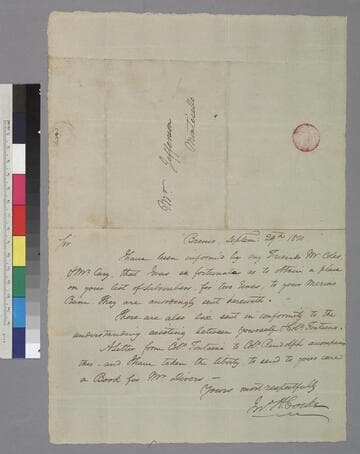 Mr Jefferson
Monticello
Sir
Bremo Septem: 29th 1810
I have been informed by my Friends Mr. Coles,
& Mr. Cary, that I was so fortunate as to obtain a place
on your list of subscribers for two Ewes to your Merino
Ram. They are accordingly sent herewith.
There are also two sent in conformity to the
understanding existing between yourself & Colo. Fontaine.
A letter from Colo. Fontaine to Colo. Randolph accompanies
this – and I have taken the liberty to send to your care
a Book for Mr Divers –
Yours most respectfully
Jno. H. Cocke